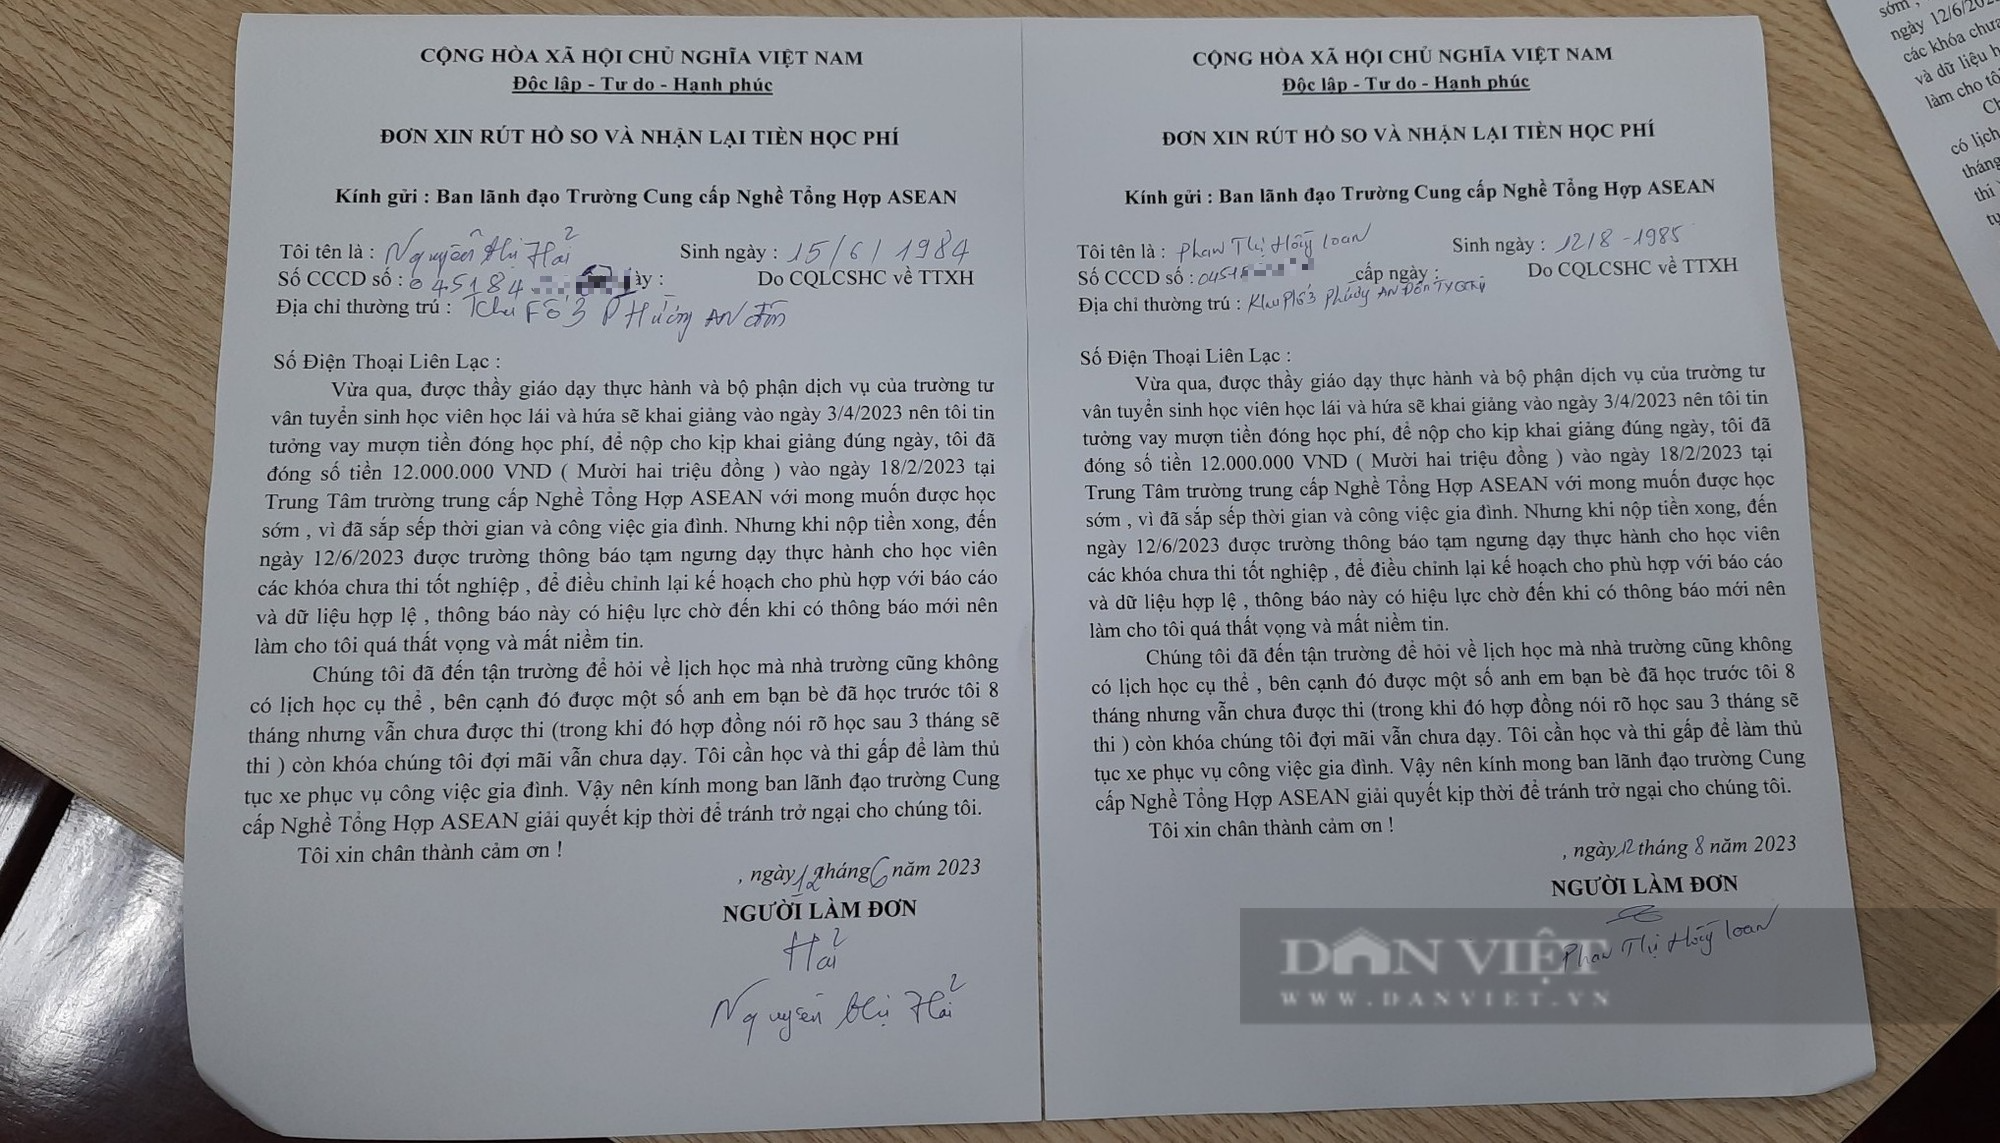 CỘNG HÒA XÃ HỘI CHỦ NGHĨA VIỆT NAM
Độc lập - Tư do - Hạnh phúc
ĐƠN XIN RÚT HỒ SO VÀ NHẬN LẠI TIỀN HỌC PHÍ
Kính gửi : Ban lãnh đạo Trường Cung cấp Nghề Tổng Hợp ASEAN
Tôi tên là : Nguyễn thị Hải Sinh ngày : 15/6/1984
Số CCCD số : 045184 ày : Do CQLCSHC về TTXH
Địa chỉ thường trú : Khu Fố 3 Phường AN đôn
Số Điện Thoại Liên Lạc :
Vừa qua, được thầy giáo dạy thực hành và bộ phận dịch vụ của trường tư
vân tuyển sinh học viên học lái và hứa sẽ khai giảng vào ngày 3/4/2023 nên tôi tin
tưởng vay mượn tiền đóng học phí, để nộp cho kịp khai giảng đúng ngày, tôi đã
đóng số tiền 12.000.000 VND ( Mười hai triệu đồng ) vào ngày 18/2/2023 tại
Trung Tâm trường trung cấp Nghề Tổng Hợp ASEAN với mong muốn được học
sớm , vì đã sắp sếp thời gian và công việc gia đình. Nhưng khi nộp tiền xong, đến
ngày 12/6/2023 được trường thông báo tạm ngưng dạy thực hành cho học viên
các khóa chưa thi tốt nghiệp , để điều chỉnh lại kế hoạch cho phù hợp với báo cáo
và dữ liệu hợp lệ , thông báo này có hiệu lực chờ đến khi có thông báo mới nên
làm cho tôi quá thất vọng và mất niềm tin.
Chúng tôi đã đến tận trường để hỏi về lịch học mà nhà trường cũng không
có lịch học cụ thể , bên cạnh đó được một số anh em bạn bè đã học trước tôi 8
tháng nhưng vẫn chưa được thi (trong khi đó hợp đồng nói rõ học sau 3 tháng sẽ
thi ) còn khóa chúng tôi đợi mãi vẫn chưa dạy. Tôi cần học và thi gấp để làm thủ
tục xe phục vụ công việc gia đình. Vậy nên kính mong ban lãnh đạo trường Cung
cấp Nghề Tổng Hợp ASEAN giải quyết kịp thời để tránh trở ngại cho chúng tôi.
Tôi xin chân thành cảm ơn !
, ngày 12 tháng 6 năm 2023
NGƯỜI LÀM ĐƠN
Hải
Nguyễn thị Hải
CỘNG HÒA XÃ HỘI CHỦ NGHĨA VIỆT NAM
Độc lập - Tư do - Hạnh phúc
ĐƠN XIN RÚT HỒ SO VÀ NHẬN LẠI TIỀN HỌC PHÍ
Kính gửi : Ban lãnh đạo Trường Cung cấp Nghề Tổng Hợp ASEAN
Tôi tên là : Phan Thị Hồng Loan Sinh ngày : 12/8-1985
Số CCCD số : 04518 cấp ngày : Do CQLCSHC về TTXH
Địa chỉ thường trú : Khu Phố 3 Phường AN Đôn
Số Điện Thoại Liên Lạc :
Vừa qua, được thầy giáo dạy thực hành và bộ phận dịch vụ của trường tư
vân tuyển sinh học viên học lái và hứa sẽ khai giảng vào ngày 3/4/2023 nên tôi tin
tưởng vay mượn tiền đóng học phí, để nộp cho kịp khai giảng đúng ngày, tôi đã
đóng số tiền 12.000.000 VND ( Mười hai triệu đồng ) vào ngày 18/2/2023 tại
Trung Tâm trường trung cấp Nghề Tổng Hợp ASEAN với mong muốn được học
sớm , vì đã sắp sếp thời gian và công việc gia đình. Nhưng khi nộp tiền xong, đến
ngày 12/6/2023 được trường thông báo tạm ngưng dạy thực hành cho học viên
các khóa chưa thi tốt nghiệp , để điều chỉnh lại kế hoạch cho phù hợp với báo cáo
và dữ liệu hợp lệ , thông báo này có hiệu lực chờ đến khi có thông báo mới nên
làm cho tôi quá thất vọng và mất niềm tin.
Chúng tôi đã đến tận trường để hỏi về lịch học mà nhà trường cũng không
có lịch học cụ thể , bên cạnh đó được một số anh em bạn bè đã học trước tôi 8
tháng nhưng vẫn chưa được thi (trong khi đó hợp đồng nói rõ học sau 3 tháng sẽ
thi ) còn khóa chúng tôi đợi mãi vẫn chưa dạy. Tôi cần học và thi gấp để làm thủ
tục xe phục vụ công việc gia đình. Vậy nên kính mong ban lãnh đạo trường Cung
cấp Nghề Tổng Hợp ASEAN giải quyết kịp thời để tránh trở ngại cho chúng tôi.
Tôi xin chân thành cảm ơn !
, ngày 12 tháng 8 năm 2023
NGƯỜI LÀM ĐƠN
Phan Thị Hồng Loan
DÂN VIỆT
WWW.DANVIET.VN
sớm ,
ngày 12/6/202
các khóa chưa
và dữ liệu h
làm cho tô
Ch
có lịch
tháng
thi
tụ